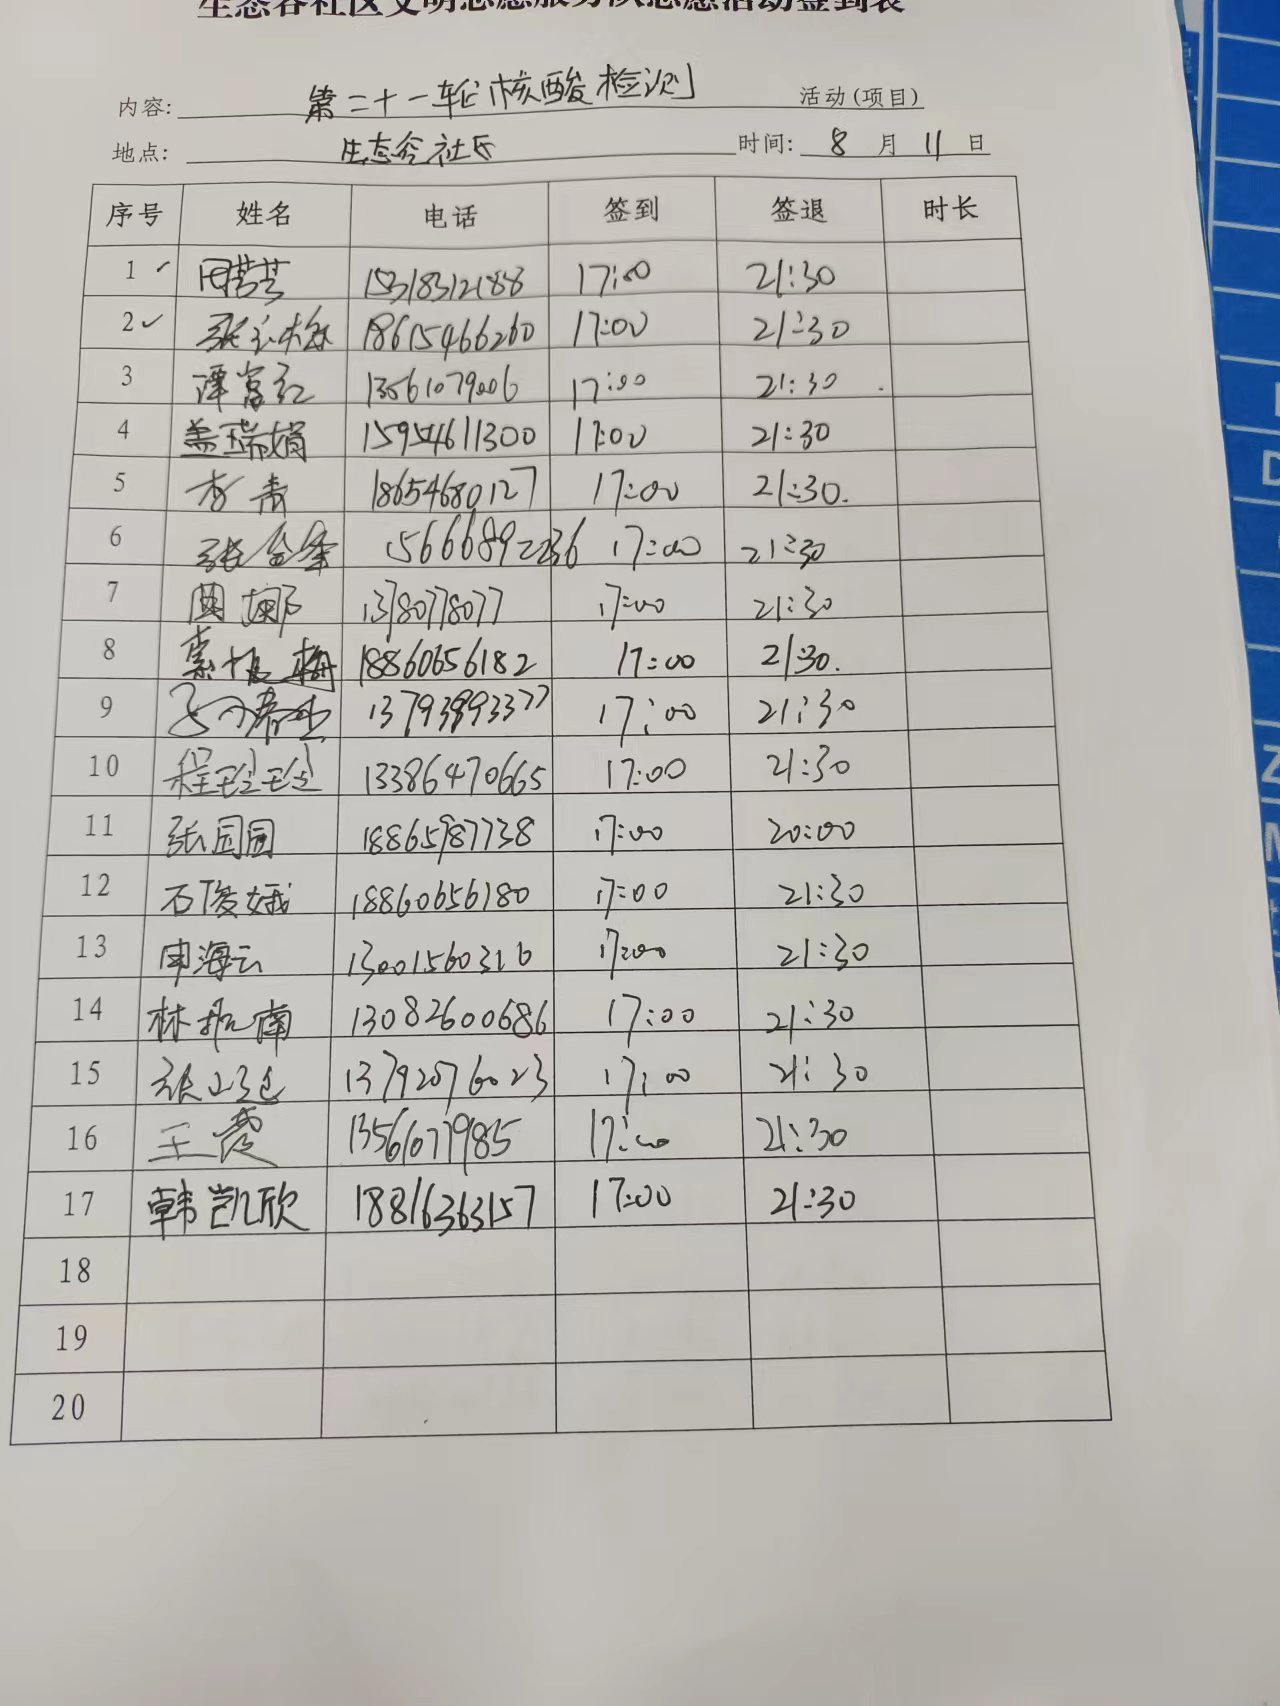 生态谷社区文明志愿服务队志愿活动签到表
内容: 第二十一轮核酸检测 活动(项目)
地点: 生态谷社区 时间: 8 月 11 日
序号 姓名 电话 签到 签退 时长
1 ✓ 15318312188 17:00 21:30
2 ✓ 18615466260 17:00 21:30
3 谭富红 13561079006 17:00 21:30
4 盖瑞娟 15954611300 17:00 21:30
5 李青 18654680127 17:00 21:30.
6 15666892236 17:00 21:30
7 13780778077 17:00 21:30
8 18860656182 17:00 21:30.
9 13793993377 17:00 21:30
10 程珍珍 13386470665 17:00 21:30
11 张园园 18865987738 17:00 20:00
12 石俊娥 18860656180 17:00 21:30
13 申海云 13001560316 17:00 21:30
14 13082600686 17:00 21:30
15 13792076023 17:00 21:30
16 王霞 13561077985 17:00 21:30
17 韩凯欣 18816363157 17:00 21:30
18
19
20